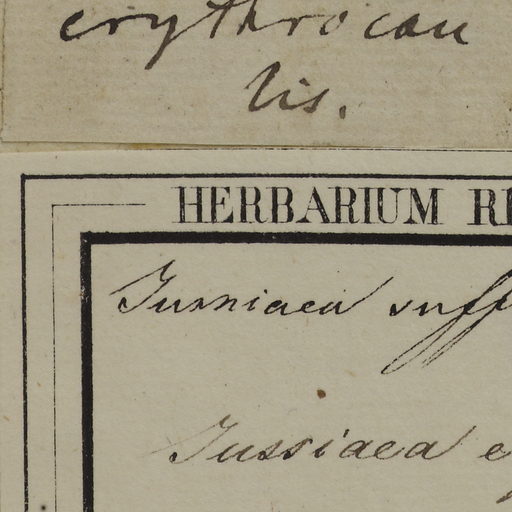 erythrocau
lis.
HERBARIUM RE
Jussiaea suff
Jussiaea e